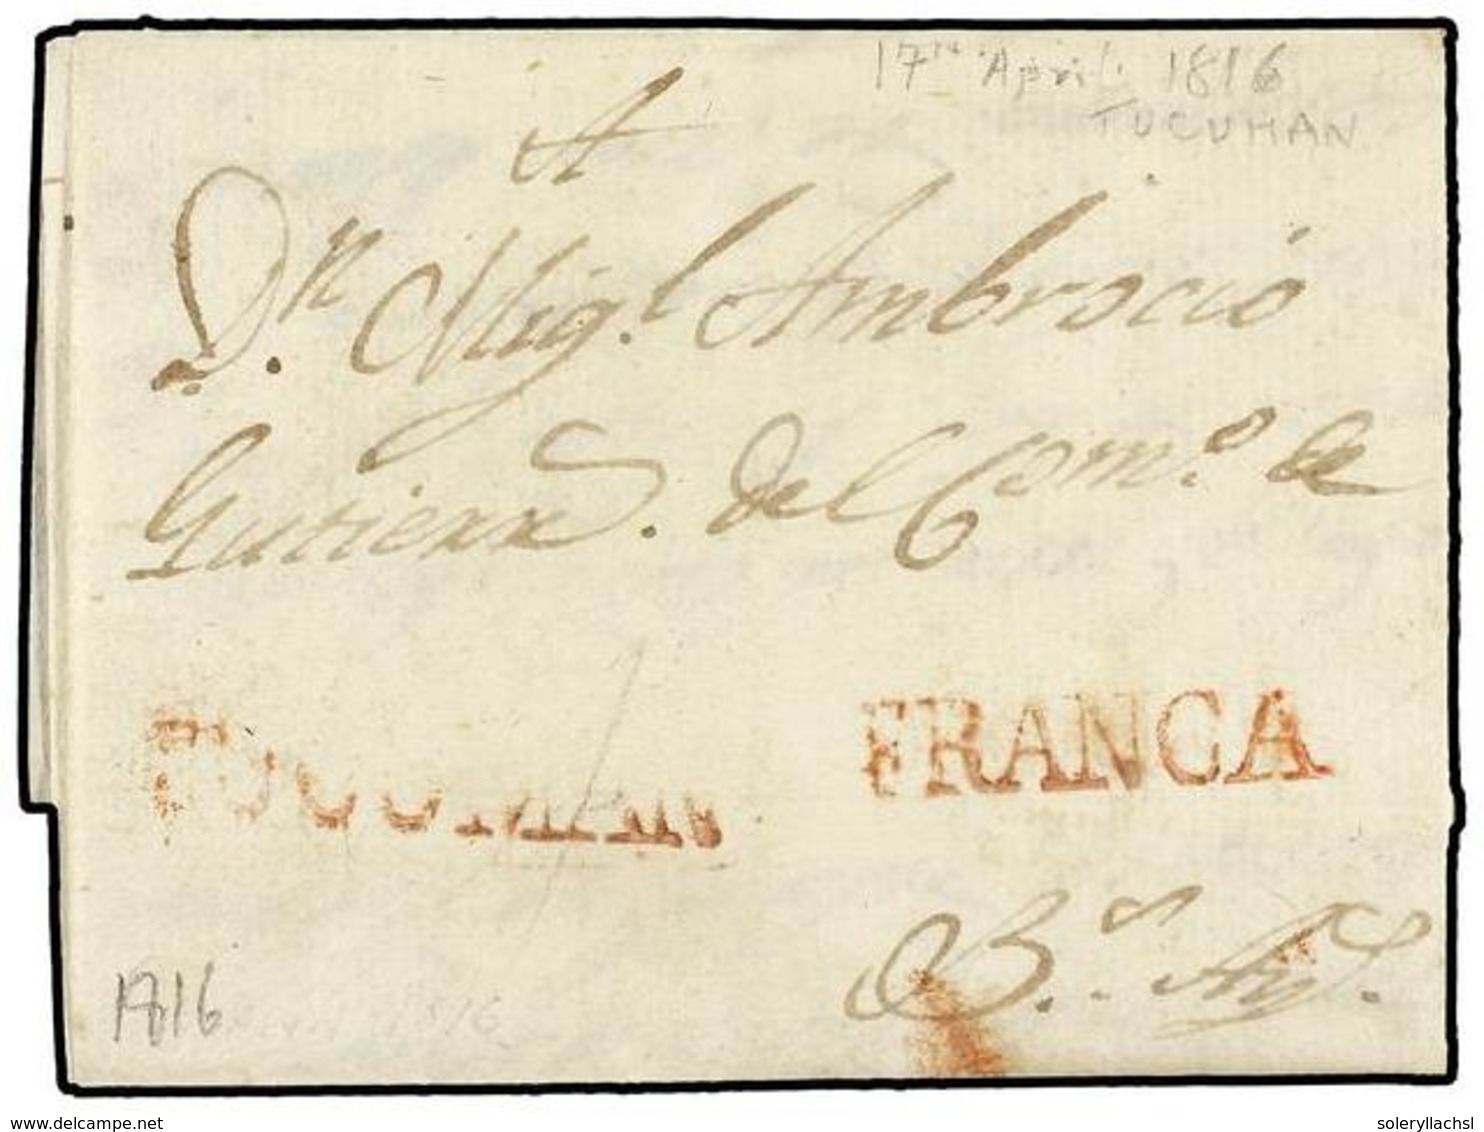 17th April 1816
TUCUMAN
A
Dn. Migl. Ambrocio
Gutierrs. del Como. de
TUCUMAN FRANCA
Bs. Ays.
1816
www.delcampe.net
soleryllachsl